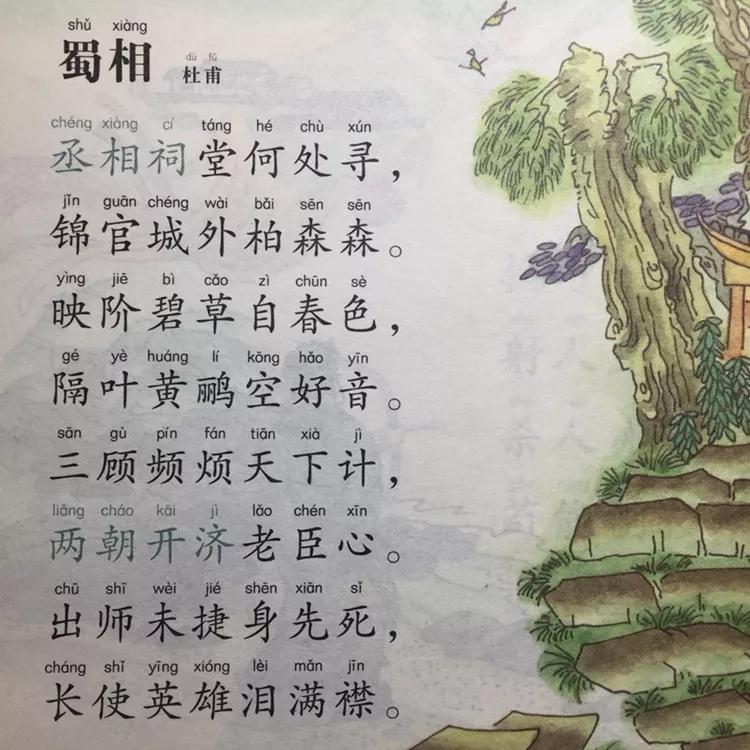 shǔ xiàng
蜀相
dù fǔ
杜甫
chéng xiàng cí táng hé chù xún
丞相祠堂何处寻，
jǐn guān chéng wài bǎi sēn sēn
锦官城外柏森森。
yìng jiē bì cǎo zì chūn sè
映阶碧草自春色，
gé yè huáng lí kōng hǎo yīn
隔叶黄鹂空好音。
sān gù pín fán tiān xià jì
三顾频烦天下计，
liǎng cháo kāi jì lǎo chén xīn
两朝开济老臣心。
chū shī wèi jié shēn xiān sǐ
出师未捷身先死，
cháng shǐ yīng xióng lèi mǎn jīn
长使英雄泪满襟。